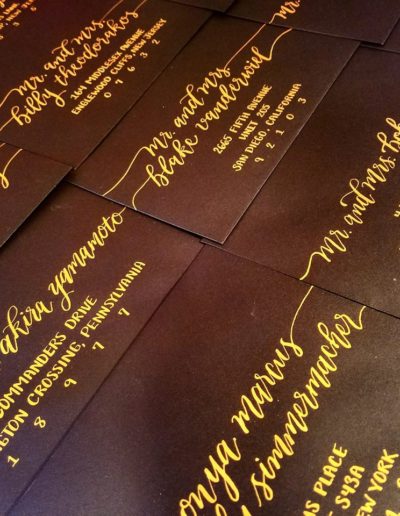 mr. and mrs.
billy theodorakos
164 MIDDLESEX AVENUE
ENGLEWOOD CLIFFS, NEW JERSEY
0 7 6 3 2
mr.
mr. and mrs.
blake vanderwiel
2665 FIFTH AVENUE
UNIT 205
SAN DIEGO, CALIFORNIA
9 2 1 0 3
mr. and mrs.
akira yamamoto
COMMANDER'S DRIVE
GTON CROSSING, PENNSYLVANIA
1 8 9 7 7
onya marcus
simmermacher
PLACE
S43A
YORK